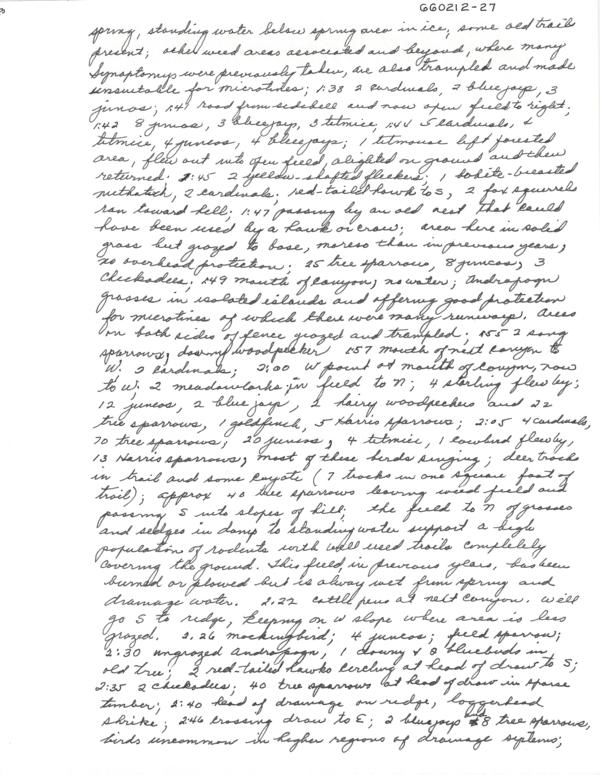 GG0212-27
spring, standing water below spring area in ice, some old trails
present; other weed areas associated and beyond, where many
Synaptomys were previously taken, are also trampled and made
unsuitable for microtines; 1:38 2 cardinals, 2 bluejays, 3
juncos; 1:41 road from sidehill and now open field to right;
1:42 8 juncos, 3 bluejays, 3 titmice, 1:44 5 cardinals, 2
titmice, 4 juncos, 4 bluejays; 1 titmouse left forested
area, flew out into open field, alighted on ground and then
returned. 1:45 2 yellow-shafted flickers; 1 white-breasted
nuthatch, 2 cardinals; red-tailed hawk to S, 2 fox squirrels
ran toward hill; 1:47 passing by an old nest that could
have been used by a hawk or crow; area here in solid
grass but grazed to base, moreso than in previous years,
no overhead protection; 25 tree sparrows, 8 juncos, 3
chickadees; 1:49 mouth of canyon; no water; Andropogon
grasses in isolated islands and offering good protection
for microtines of which there were many runways. Areas
on both sides of fence grazed and trampled; 1:55 2 song
sparrows, downy woodpecker 1:57 mouth of next canyon to
W. 2 cardinals; 2:00 W point at mouth of canyon, now
to W; 2 meadowlarks in field to N; 4 starling flew by;
12 juncos, 2 blue jays, 2 hairy woodpeckers and 22
tree sparrows, 1 goldfinch, 5 Harris sparrows; 2:05 4 cardinals,
70 tree sparrows, 20 juncos, 4 titmice, 1 cowbird flew by,
13 Harris sparrows, most of these birds singing; deer tracks
in trail and some coyote (7 tracks in one square foot of
trail); approx 40 tree sparrows leaving weed field and
passing S into slopes of hill; the field to N of grasses
and sedges in damp to standing water support a high
population of rodents with well used trails completely
covering the ground. This field, in previous years, has been
burned or plowed but is alway wet from spring and
drainage water. 2:22 cattle pens at next canyon. We'll
go S to ridge, keeping on W slope where area is less
grazed. 2:26 mockingbird; 4 juncos; field sparrow;
2:30 ungrazed Andropogon, 1 downy & 8 bluebirds in
old tree; 2 red-tailed hawks circling at head of draw to S;
2:35 2 chickadees; 40 tree sparrows at head of draw in sparse
timber; 2:40 head of drainage on ridge, loggerhead
shrike; 2:46 crossing draw to E; 2 bluejays and 8 tree sparrows,
birds uncommon in higher regions of drainage systems;